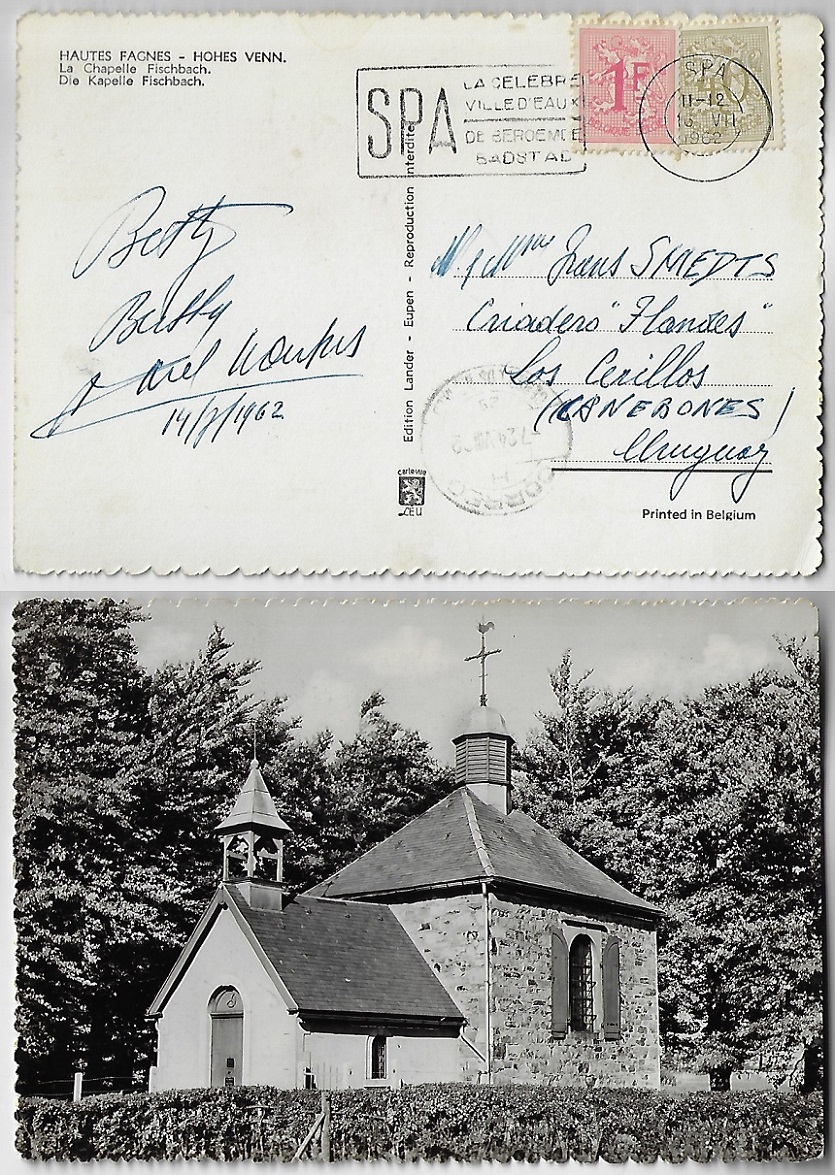 HAUTES FAGNES - HOHES VENN.
La Chapelle Fischbach.
Die Kapelle Fischbach.
SPA
LA CELEBRE
VILLE D'EAUX
DE BEROEMDE
BADSTAD
1F
40
SPA
11-12
VII
1962
Edition Lander - Eupen - Reproduction interdite
Betty
Karel
14/7/1962
M. & Mme Frans SMEDTS
Criadero "Flandes"
Los Cerillos
(CANEBONES)
Uruguay
CORREO
Printed in Belgium